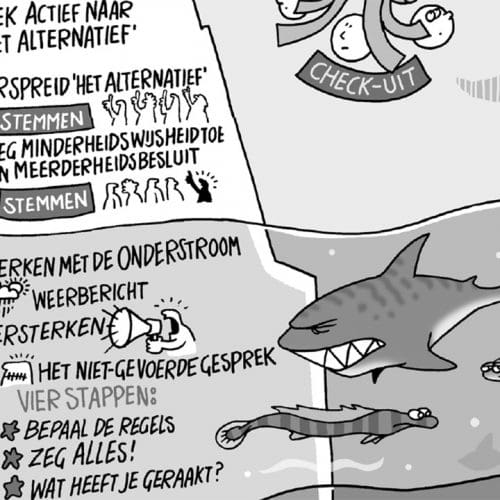 EK ACTIEF NAAR
ET ALTERNATIEF'
ERSPREID 'HET ALTERNATIEF'
STEMMEN
EG MINDERHEIDSWIJSHEID TOE
N MEERDERHEIDSBESLUIT
STEMMEN
CHECK-UIT
ERKEN MET DE ONDERSTROOM
WEERBERICHT
ERSTERKEN
HET NIET-GEVOERDE GESPREK
VIER STAPPEN:
BEPAAL DE REGELS
ZEG ALLES!
WAT HEEFT JE GERAAKT?